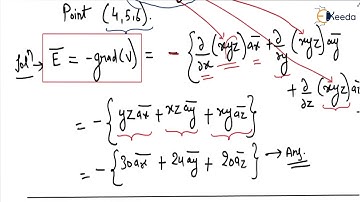 Point (4,5,6).
Ekeeda
Soln → E̅ = -grad(V) = - { ∂/∂x (xyz) a̅x + ∂/∂y (xyz) a̅y
+ ∂/∂z (xyz) a̅z }
= - { yz a̅x + xz a̅y + xy a̅z }
= - { 30 a̅x + 24 a̅y + 20 a̅z } → Ans.